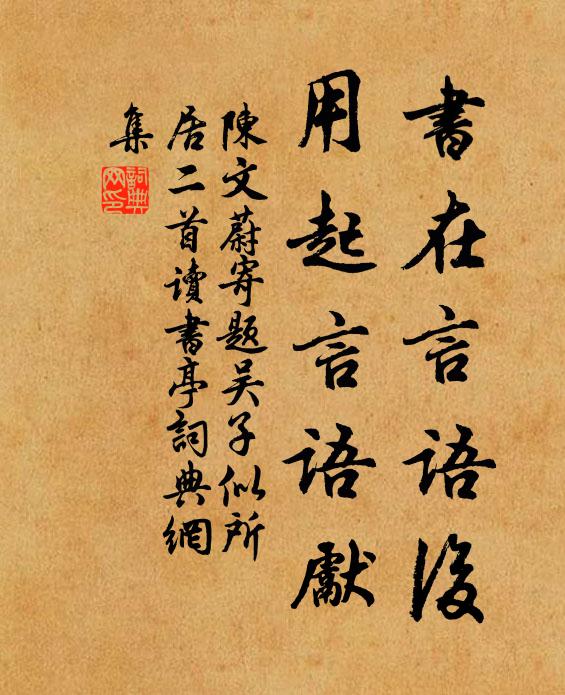 書在言語後
用起言語獻
陳文蔚寄題吴子似所
居二首讀書亭詞典網
集
詞典
网印